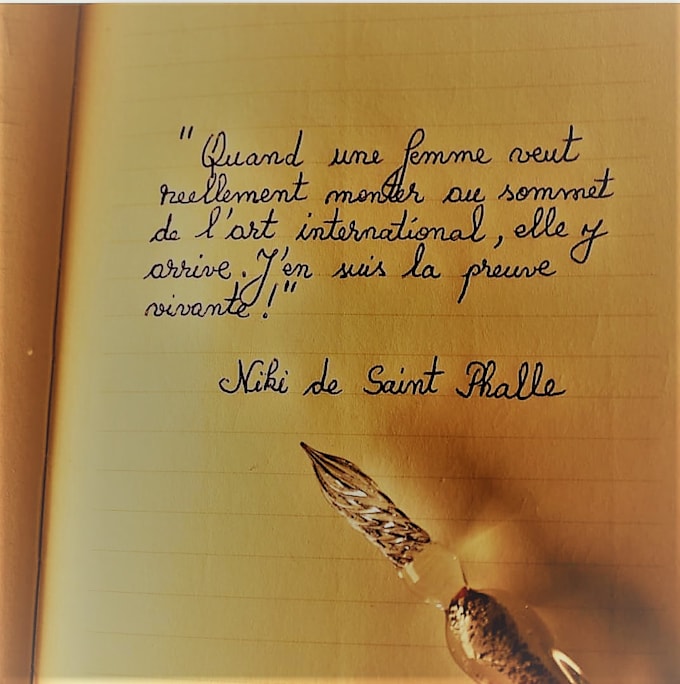 "Quand une femme veut
reellement monter au sommet
de l'art international, elle y
arrive. J'en suis la preuve
vivante !"
Niki de Saint Phalle